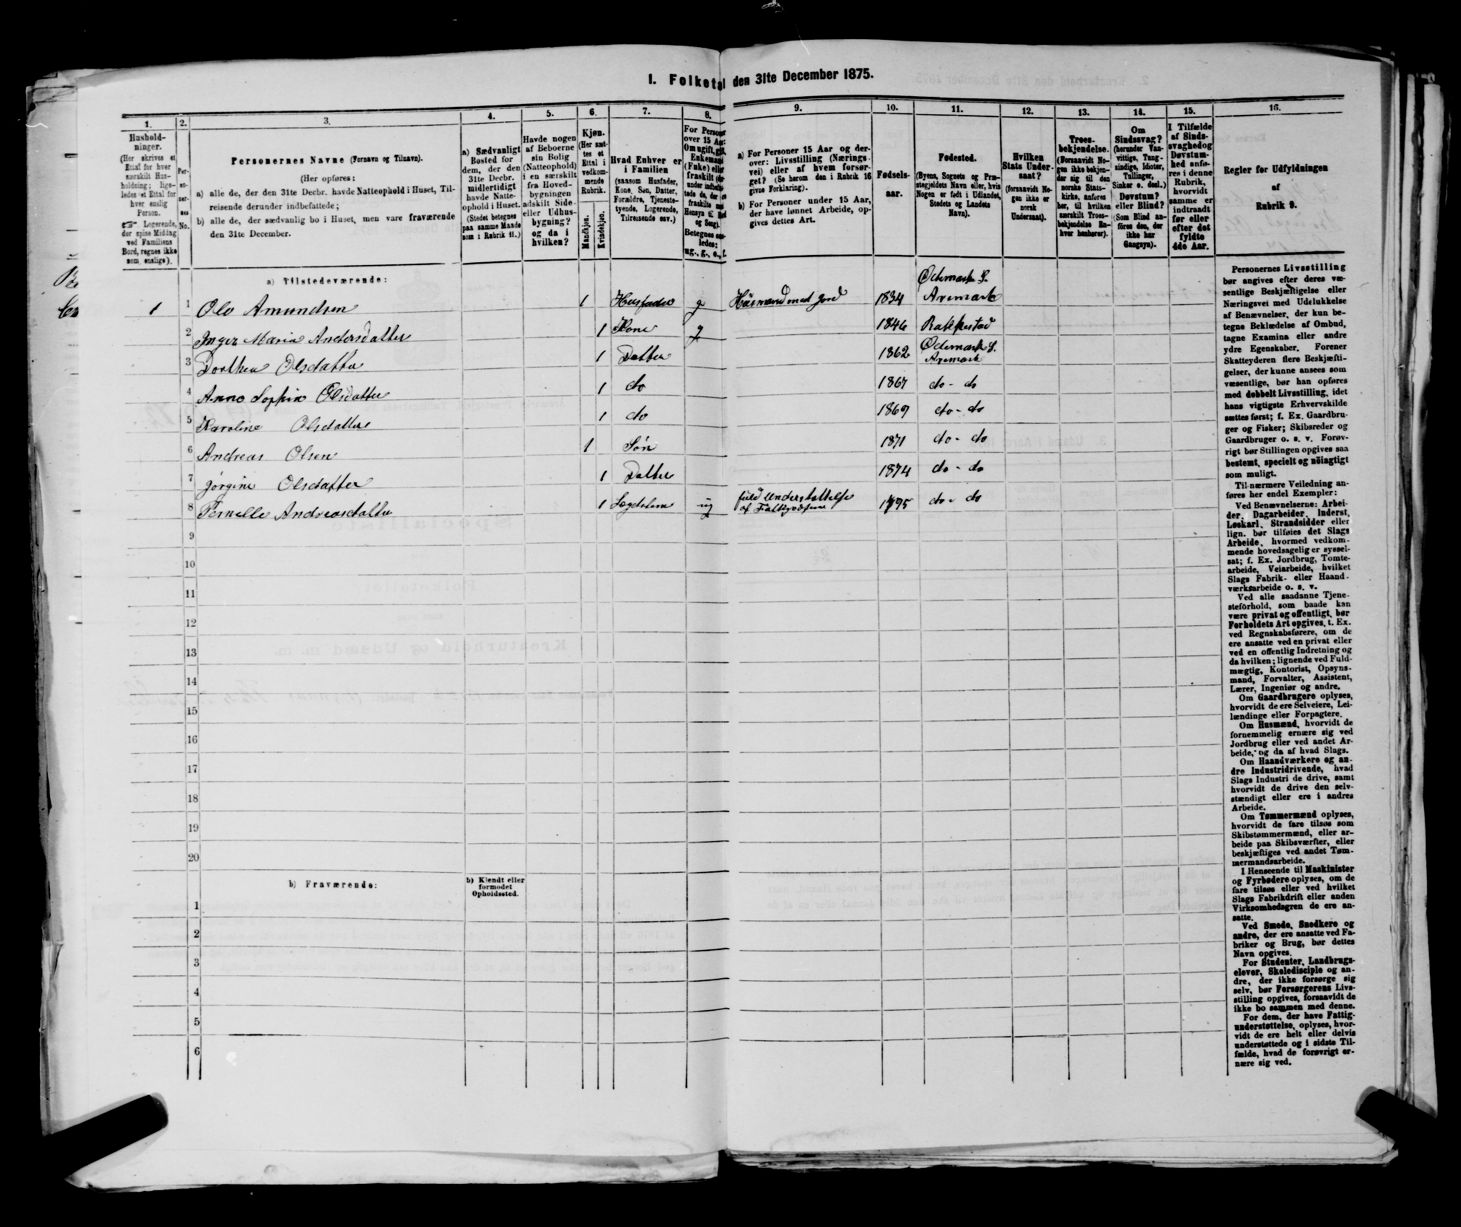 I. Folketal den 31te December 1875.
1.
2.
3.
4.
5.
6.
7.
8.
9.
10.
11.
12.
13.
14.
15.
16.
Hushold-
ninger.
(Her skrives et
Ettal for hver
særskilt Hus-
holdning; lige-
ledes et Ettal for
hver enslig
Person.
Logerende,
der spise Middag
ved Familiens
Bord, regnes ikke
som enslige).
Per-
so-
ner-
nes
No.
Personernes Navne (Fornavn og Tilnavn).
(Her opføres:
a) alle de, der den 31te Decbr. havde Natteophold i Huset, Til-
reisende derunder indbefattede;
b) alle de, der sædvanlig bo i Huset, men vare fraværende
den 31te December.
a) Sædvanligt
Bosted for
dem, der den
31te Decbr.
midlertidigt
havde Natte-
ophold i Huset.
(Stedet betegnes
paa samme Maade
som i Rubrik 11.)
Havde nogen
af Beboerne
sin Bolig
(Natteophold)
i en særskilt
fra Hoved-
bygningen
adskilt Side-
eller Udhus-
bygning?
og da i
hvilken?
Kjøn.
(Her sæt-
tes et
Ettal i
vedkom-
mende
Rubrik.
Mandkjøn.
Kvindekjøn.
Hvad Enhver er
i Familien
(saasom Husfader,
Kone, Søn, Datter,
Forældre, Tjeneste-
tyende, Logerende,
Tilreisende osv.)
a) For Personer 15 Aar og der-
over: Livsstilling (Nærings-
vei) eller af hvem forsør-
get? (Se herom den i Rubrik 16
givne Forklaring).
b) For Personer under 15 Aar,
der have lønnet Arbeide, op-
gives dettes Art.
Fødsels-
aar.
Fødested.
(Byens, Sognets og Præ-
stegjeldets Navn eller, hvis
Nogen er født i Udlandet,
Stedets og Landets
Navn).
Hvilken
Stats Under-
saat?
(forsaavidt No-
gen ikke er
norsk
Undersaat).
Troes-
bekjendelse.
(Forsaavidt No-
gen ikke bekjen-
der sig til den
norske Stats-
kirke, anføres
her, til hvilken
særskilt Troes-
bekjendelse En-
hver henhører).
Om
Sindssvag?
(herunder Van-
vittige, Tung-
sindige, Idioter,
Tullinger,
Sinker o. desl.)
Døvstum?
eller Blind?
(Som Blind an-
føres den, der
ikke har
Gangsyn).
I Tilfælde
af Sinds-
svaghed og
Døvstum-
hed anfø-
res i denne
Rubrik,
hvorvidt
samme er
indtraadt
før eller
efter det
fyldte
4de Aar.
Regler for Udfyldningen
af
Rubrik 9.
a) Tilstedeværende:
1 1 Ole Amundsen 1 Husfader g Husmand med Jord 1834 Ødemark S. Aremark
2 Inger Maria Andersdatter 1 Kone g 1846 Rakkestad
3 Dorthea Olsdatter 1 Datter 1862 Ødemark S. Aremark
4 Anne Sophie Olsdatter 1 do 1867 do - do
5 Karoline Olsdatter 1 do 1869 do - do
6 Andreas Olsen 1 Søn 1871 do - do
7 Jørgine Olsdatter 1 Datter 1874 do - do
8 Pernille Andreasdatter 1 Lægdslem ug fuld Understøttelse af Fattigvæsenet 1795 do - do
9
10
11
12
13
14
15
16
17
18
19
20
b) Fraværende:
b) Kjendt eller
formodet
Opholdssted.
1
2
3
4
5
6
Personernes Livsstilling
bør angives efter deres væ-
sentlige Beskjæftigelse eller
Næringsvei med Udelukkelse
af Benævnelser, der kun be-
tegne Beklædelse af Ombud,
tagne Examina eller andre
ydre Egenskaber. Forener
Skatteyderen flere Beskjæfti-
gelser, der kunne ansees som
væsentlige, bør han opføres
med dobbelt Livsstilling, idet
hans vigtigste Erhvervskilde
sættes først; f. Ex. Gaardbru-
ger og Fisker; Skibsreder og
Gaardbruger o. s. v. Forøv-
rigt bør Stillingen opgives saa
bestemt, specielt og nøiagtigt
som muligt.
Til nærmere Veiledning an-
føres her endel Exempler:
Ved Benævnelserne: Arbei-
der, Dagarbeider, Inderst,
Løskarl, Strandsidder eller
lign. bør tilføies det Slags
Arbeide, hvormed vedkom-
mende hovedsagelig er syssel-
sat; f. Ex. Jordbrug, Tomte-
arbeide, Veiarbeide, hvilket
Slags Fabrik- eller Haand-
værksarbeide o. s. v.
Ved alle saadanne Tjene-
steforhold, som baade kan
være privat og offentligt, bør
Forholdets Art opgives, t. Ex.
ved Regnskabsførere, om de
ere ansatte ved en privat eller
ved en offentlig Indretning og
da hvilken; lignende ved Fuld-
mægtig, Kontorist, Opsyns-
mand, Forvalter, Assistent,
Lærer, Ingeniør og andre.
Om Gaardbrugere oplyses,
hvorvidt de ere Selveiere, Lei-
lændinge eller Forpagtere.
Om Husmænd, hvorvidt de
fornemmelig ernære sig ved
Jordbrug eller ved andet Ar-
beide, og da af hvad Slags.
Om Haandværkere og an-
dre Industridrivende, hvad
Slags Industri de drive, samt
hvorvidt de drive den selv-
stændigt eller ere i andres
Arbeide.
Om Tømmermænd oplyses,
hvorvidt de fare tilsøs som
Skibstømmermænd, eller ar-
beide paa Skibsværfter, eller
beskjæftiges ved andet Tøm-
mermandsarbeide.
I Henseende til Maskinister
og Fyrbødere oplyses, om de
fare tilsøs eller ved hvilket
Slags Fabrikdrift eller anden
Virksomhedsgren de ere an-
satte.
Ved Smede, Snedkere og
andre, der ere ansatte ved Fa-
briker og Brug, bør dettes
Navn opgives.
For Studenter, Landbrugs-
elever, Skoledisciple og an-
dre, der ikke forsørge sig
selv, bør Forsørgerens Livs-
stilling opgives, forsaavidt de
ikke bo sammen med denne.
For dem, der have Fattig-
understøttelse, oplyses, hvor-
vidt de ere helt eller delvis
understøttede og i sidste Til-
fælde, hvad de forøvrigt er-
nære sig ved.